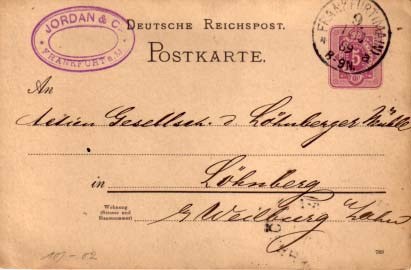 JORDAN & C.
FRANKFURT a. M.
DEUTSCHE REICHSPOST.
POSTKARTE.
FRANKFURT (MAIN)
9
89
8-9N.
An
Actien Gesellsch. d Löhnberger Mühle
in Löhnberg
Wohnung
(Strasse und
Hausnummer)
Weilburg Lahn